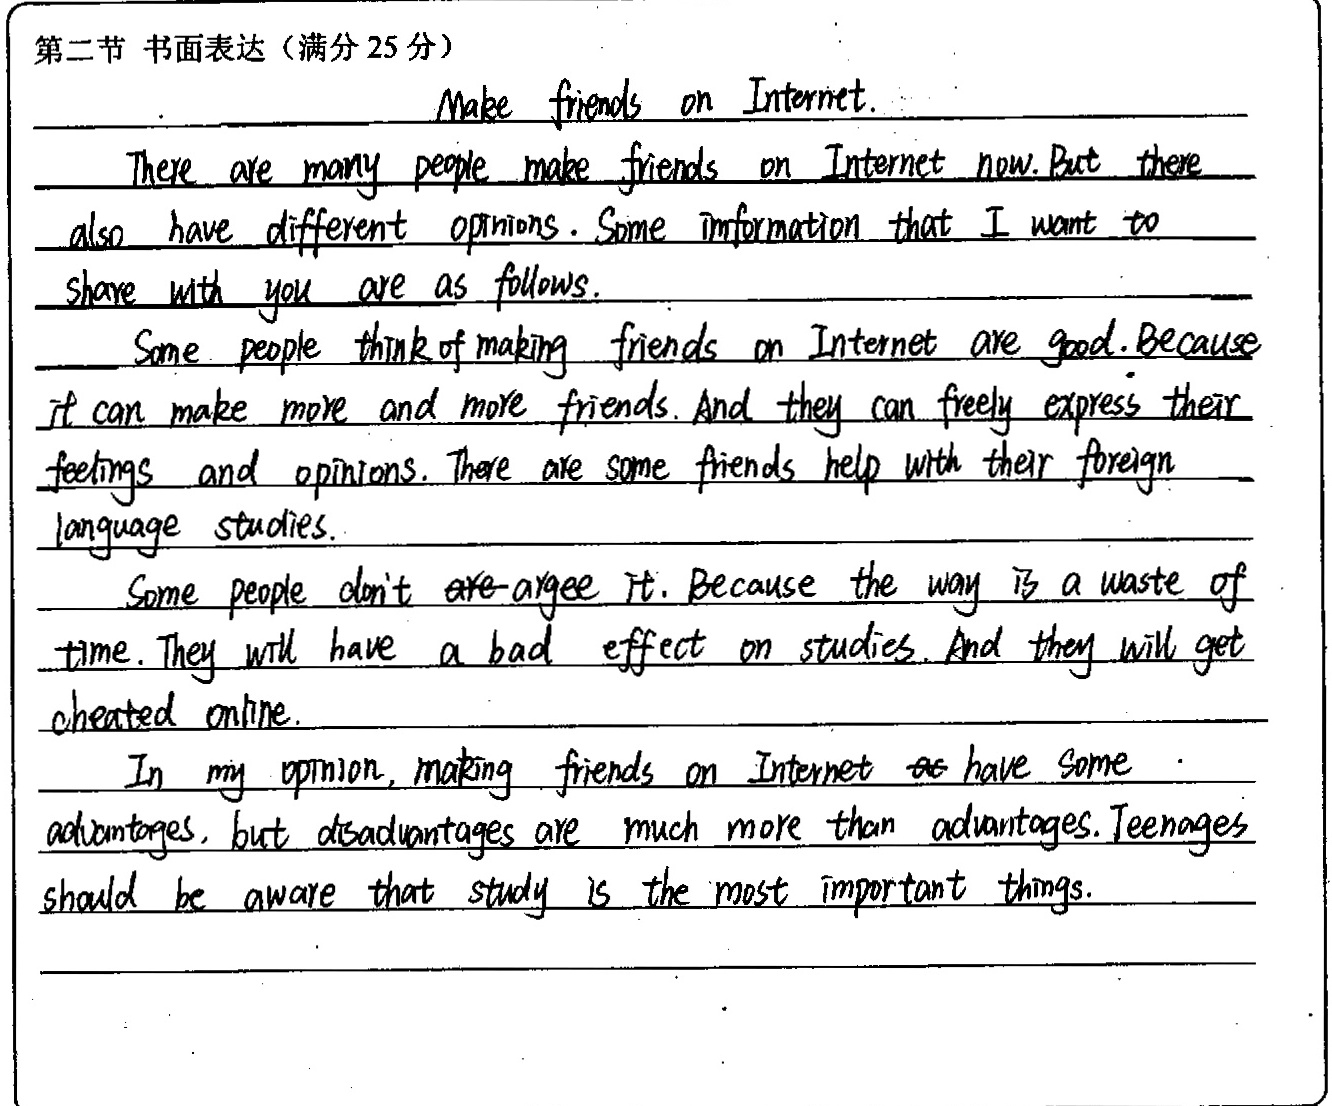 第二节 书面表达（满分 25 分）
Make friends on Internet.
There are many people make friends on Internet now. But there
also have different opinions. Some imformation that I want to
share with you are as follows.
Some people think of making friends on Internet are good. Because
it can make more and more friends. And they can freely express their
feelings and opinions. There are some friends help with their foreign
language studies.
Some people don't are argee it. Because the way is a waste of
time. They will have a bad effect on studies. And they will get
cheated online.
In my opinion, making friends on Internet have some
advantages, but disadvantages are much more than advantages. Teenages
should be aware that study is the most important things.